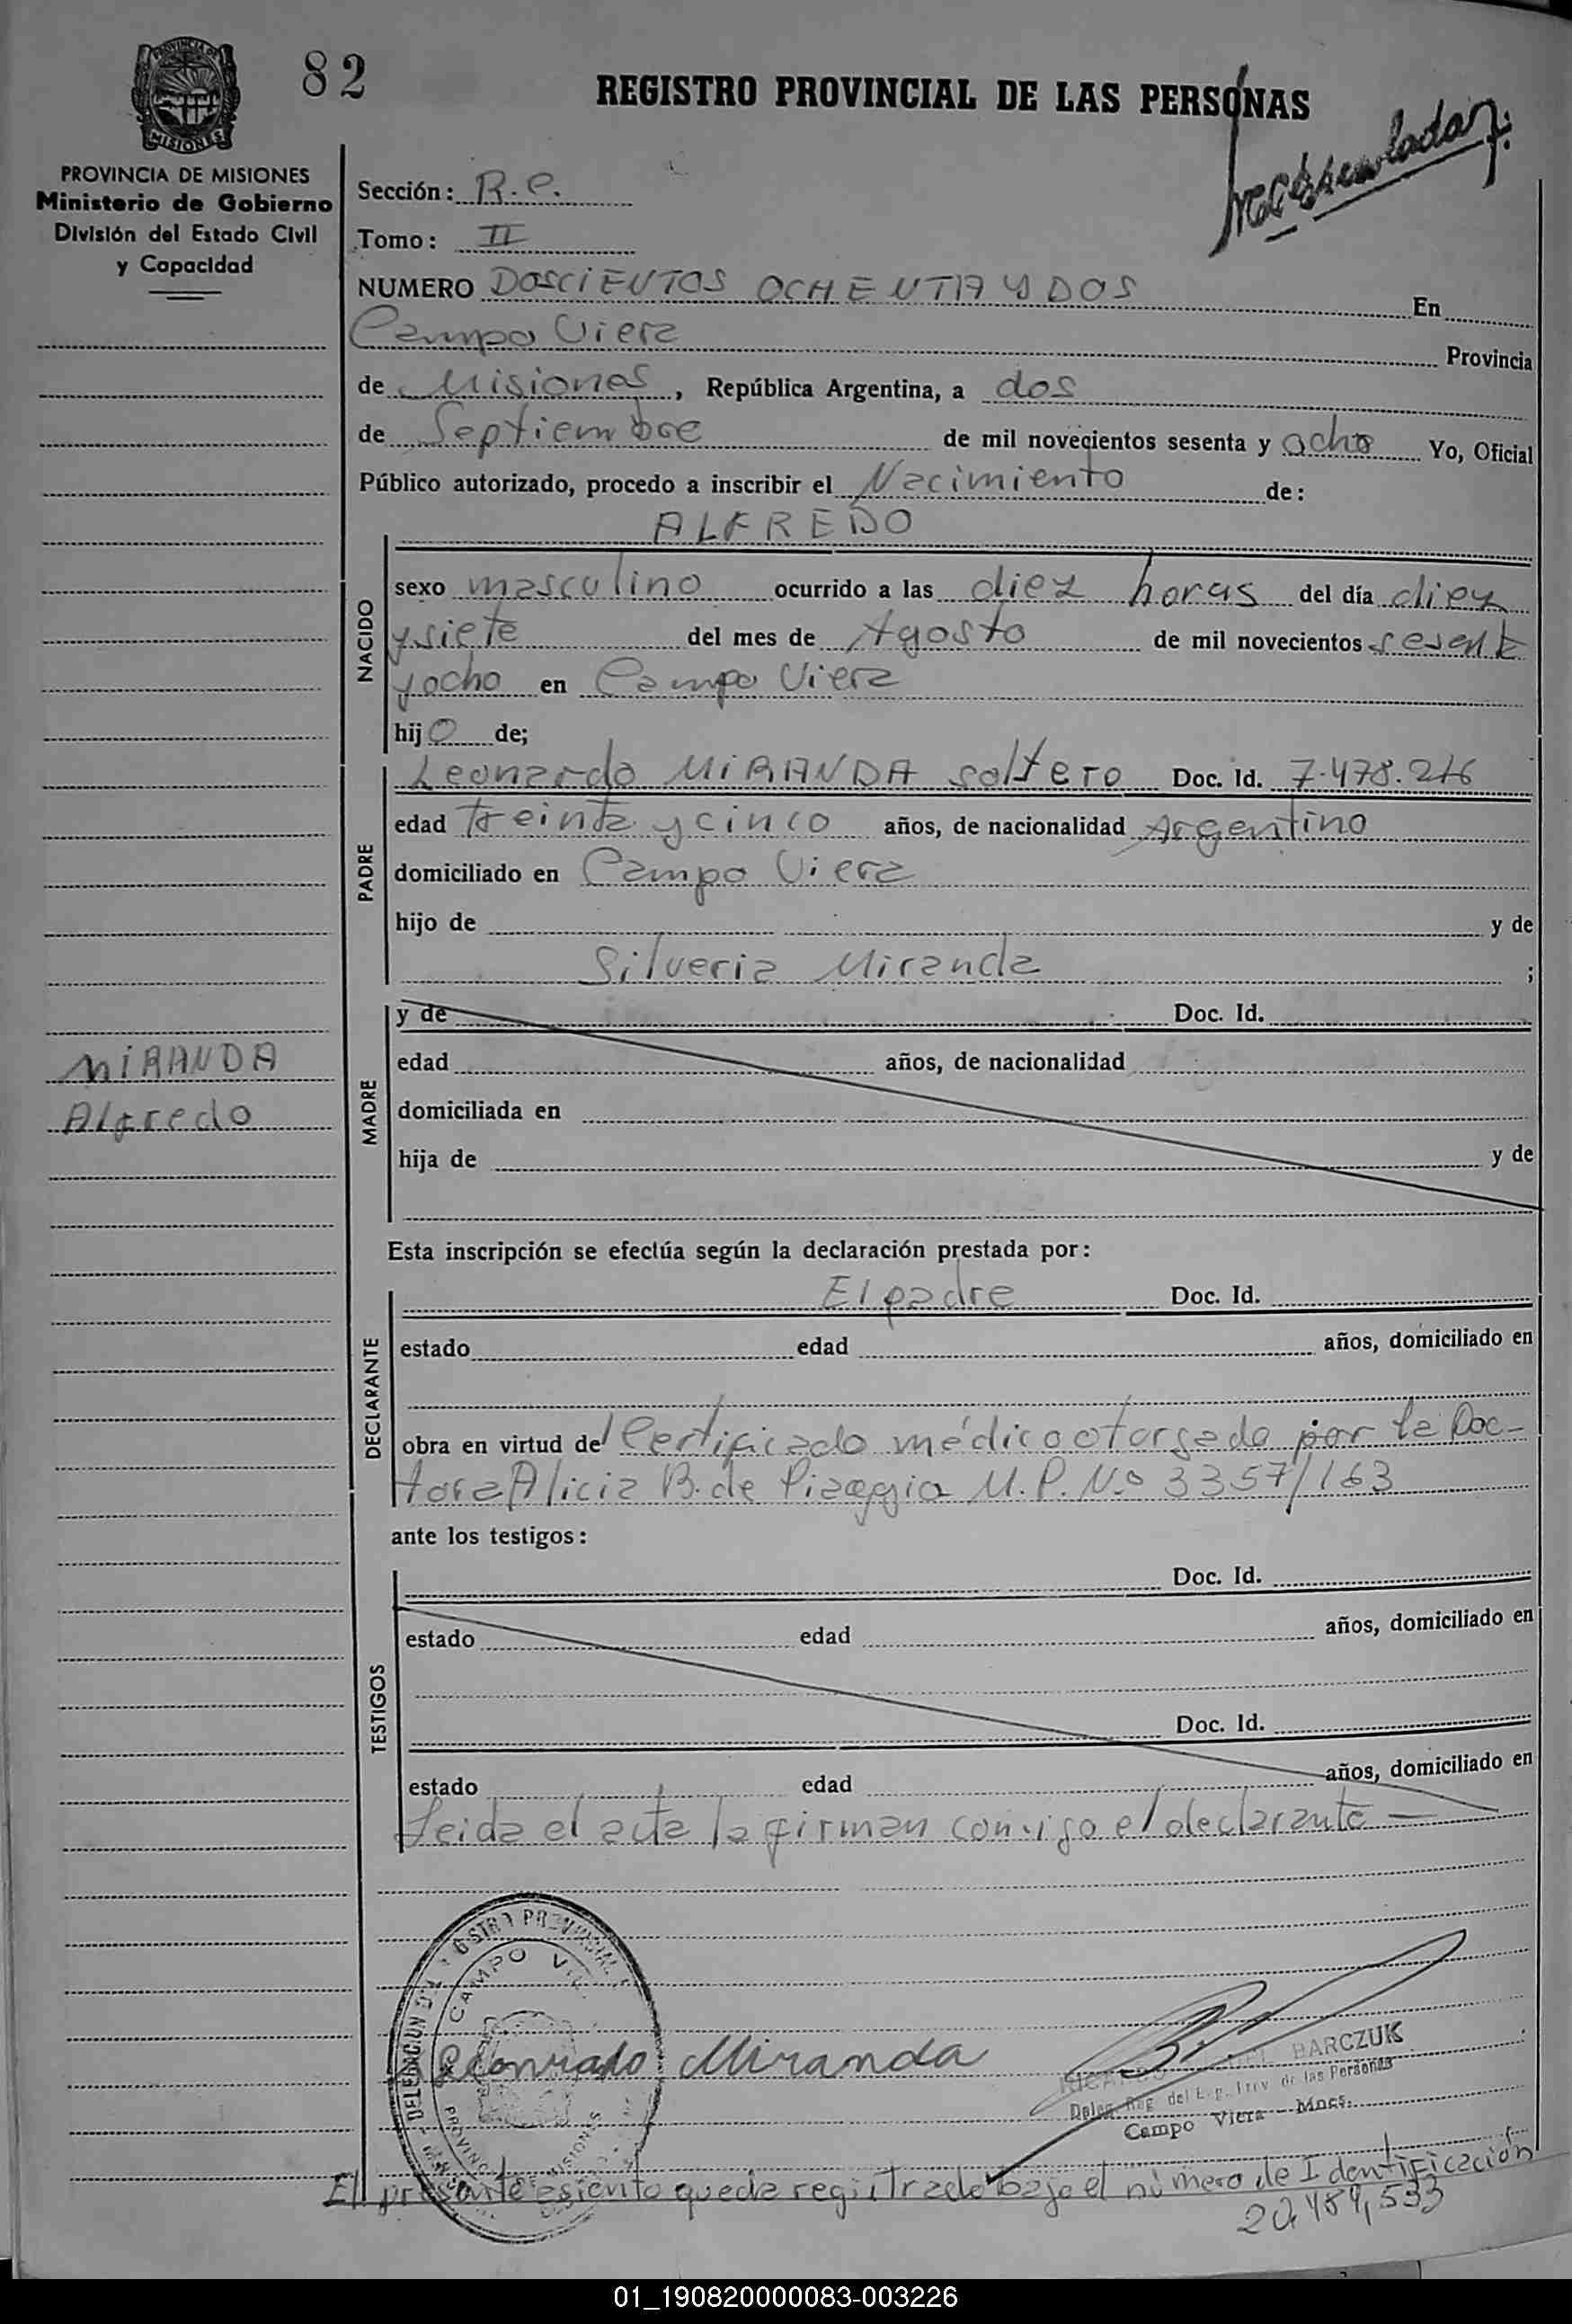 82
REGISTRO PROVINCIAL DE LAS PERSONAS
PROVINCIA DE MISIONES
Ministerio de Gobierno
División del Estado Civil
y Capacidad
Sección: R.P.
Tomo: II
NUMERO DOSCIENTOS OCHENTA Y DOS En
Campo Viera Provincia
de Misiones, República Argentina, a dos
de Septiembre de mil novecientos sesenta y ocho Yo, Oficial
Público autorizado, procedo a inscribir el Nacimiento de:
ALFREDO
NACIDO
sexo masculino ocurrido a las diez horas del día diez
y siete del mes de Agosto de mil novecientos sesenta
y ocho en Campo Viera
hijo de;
PADRE
Leonardo MIRANDA soltero Doc. Id. 7.478.216
edad treinta y cinco años, de nacionalidad Argentino
domiciliado en Campo Viera
hijo de y de
Silveria Miranda ;
MADRE
y de Doc. Id.
edad años, de nacionalidad
domiciliada en
hija de y de
MIRANDA
Alfredo
Esta inscripción se efectúa según la declaración prestada por:
DECLARANTE
El padre Doc. Id.
estado edad años, domiciliado en
obra en virtud del Certificado médico otorgado por la Doc-
tora Alicia B. de M.P. Nº 3357/163
ante los testigos:
TESTIGOS
Doc. Id.
estado edad años, domiciliado en
Doc. Id.
estado edad años, domiciliado en
Leida el acta la firman conmigo el declarante —
CAMPO
Miranda
BARCZUK
Deleg. Reg. del Reg. Prov. de las Personas
Campo Viera - Mnes.
El presente asiento queda registrado bajo el número de Identificación
20,484,533
01_190820000083-003226